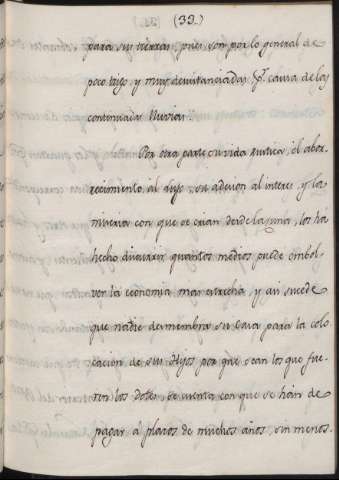 (33.)
para sus tierras, pues son por lo general de
poco trigo y muy desustanciadas pr. causa de las
continuadas lluvias.
Por otra parte su vida rustica, el abor-
recimiento al lujo, su adesion al interes, y la
miseria con que se crian desde la cuna, los há
hecho discurrir quantos medios puede embol-
ver la economia mas estrecha, y asi sucede
que nadie desmembra su Casa para la colo-
cacion de sus Hijos por que sean los que fue-
ren los Dotes, se cuenta con que se hán de
pagar á plazos de muchos años, sin menos.